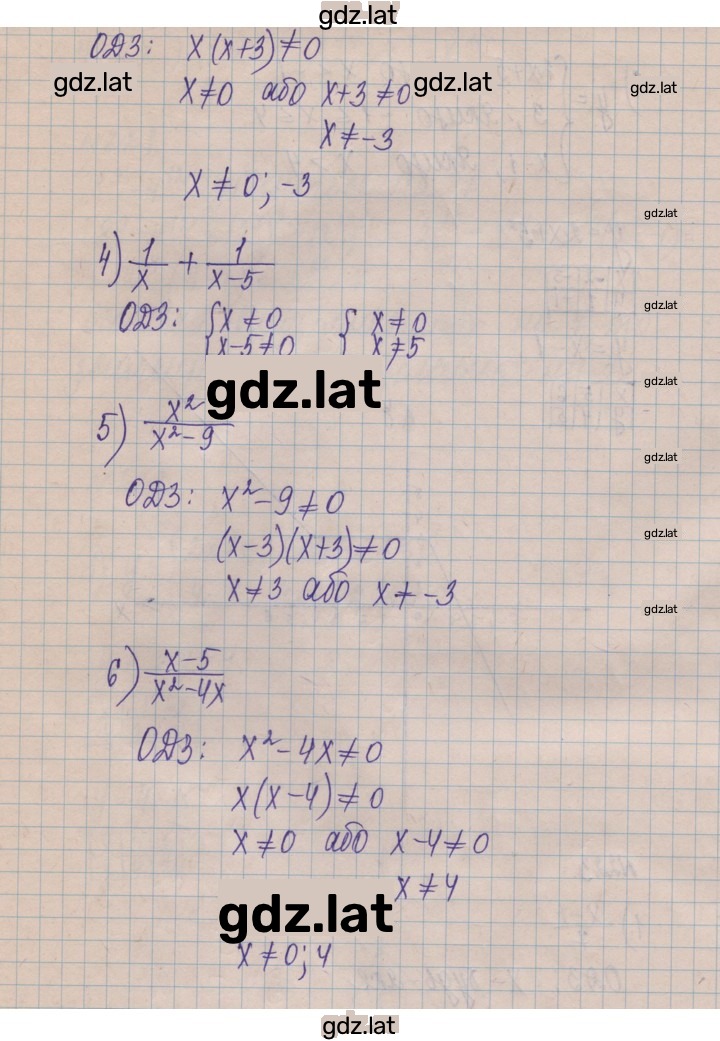 gdz.lat
ОДЗ: x(x+3)≠0
gdz.lat gdz.lat gdz.lat
x≠0 або x+3≠0
x≠-3
x≠0; -3
gdz.lat
4) 1/x + 1/(x-5)
gdz.lat
ОДЗ: { x≠0 { x≠0
x-5≠0 x≠5
gdz.lat
gdz.lat
5) x²/(x²-9)
gdz.lat
ОДЗ: x²-9≠0
gdz.lat
(x-3)(x+3)≠0
x≠3 або x≠-3
gdz.lat
6) (x-5)/(x²-4x)
ОДЗ: x²-4x≠0
x(x-4)≠0
x≠0 або x-4≠0
x≠4
gdz.lat
x≠0; 4
gdz.lat